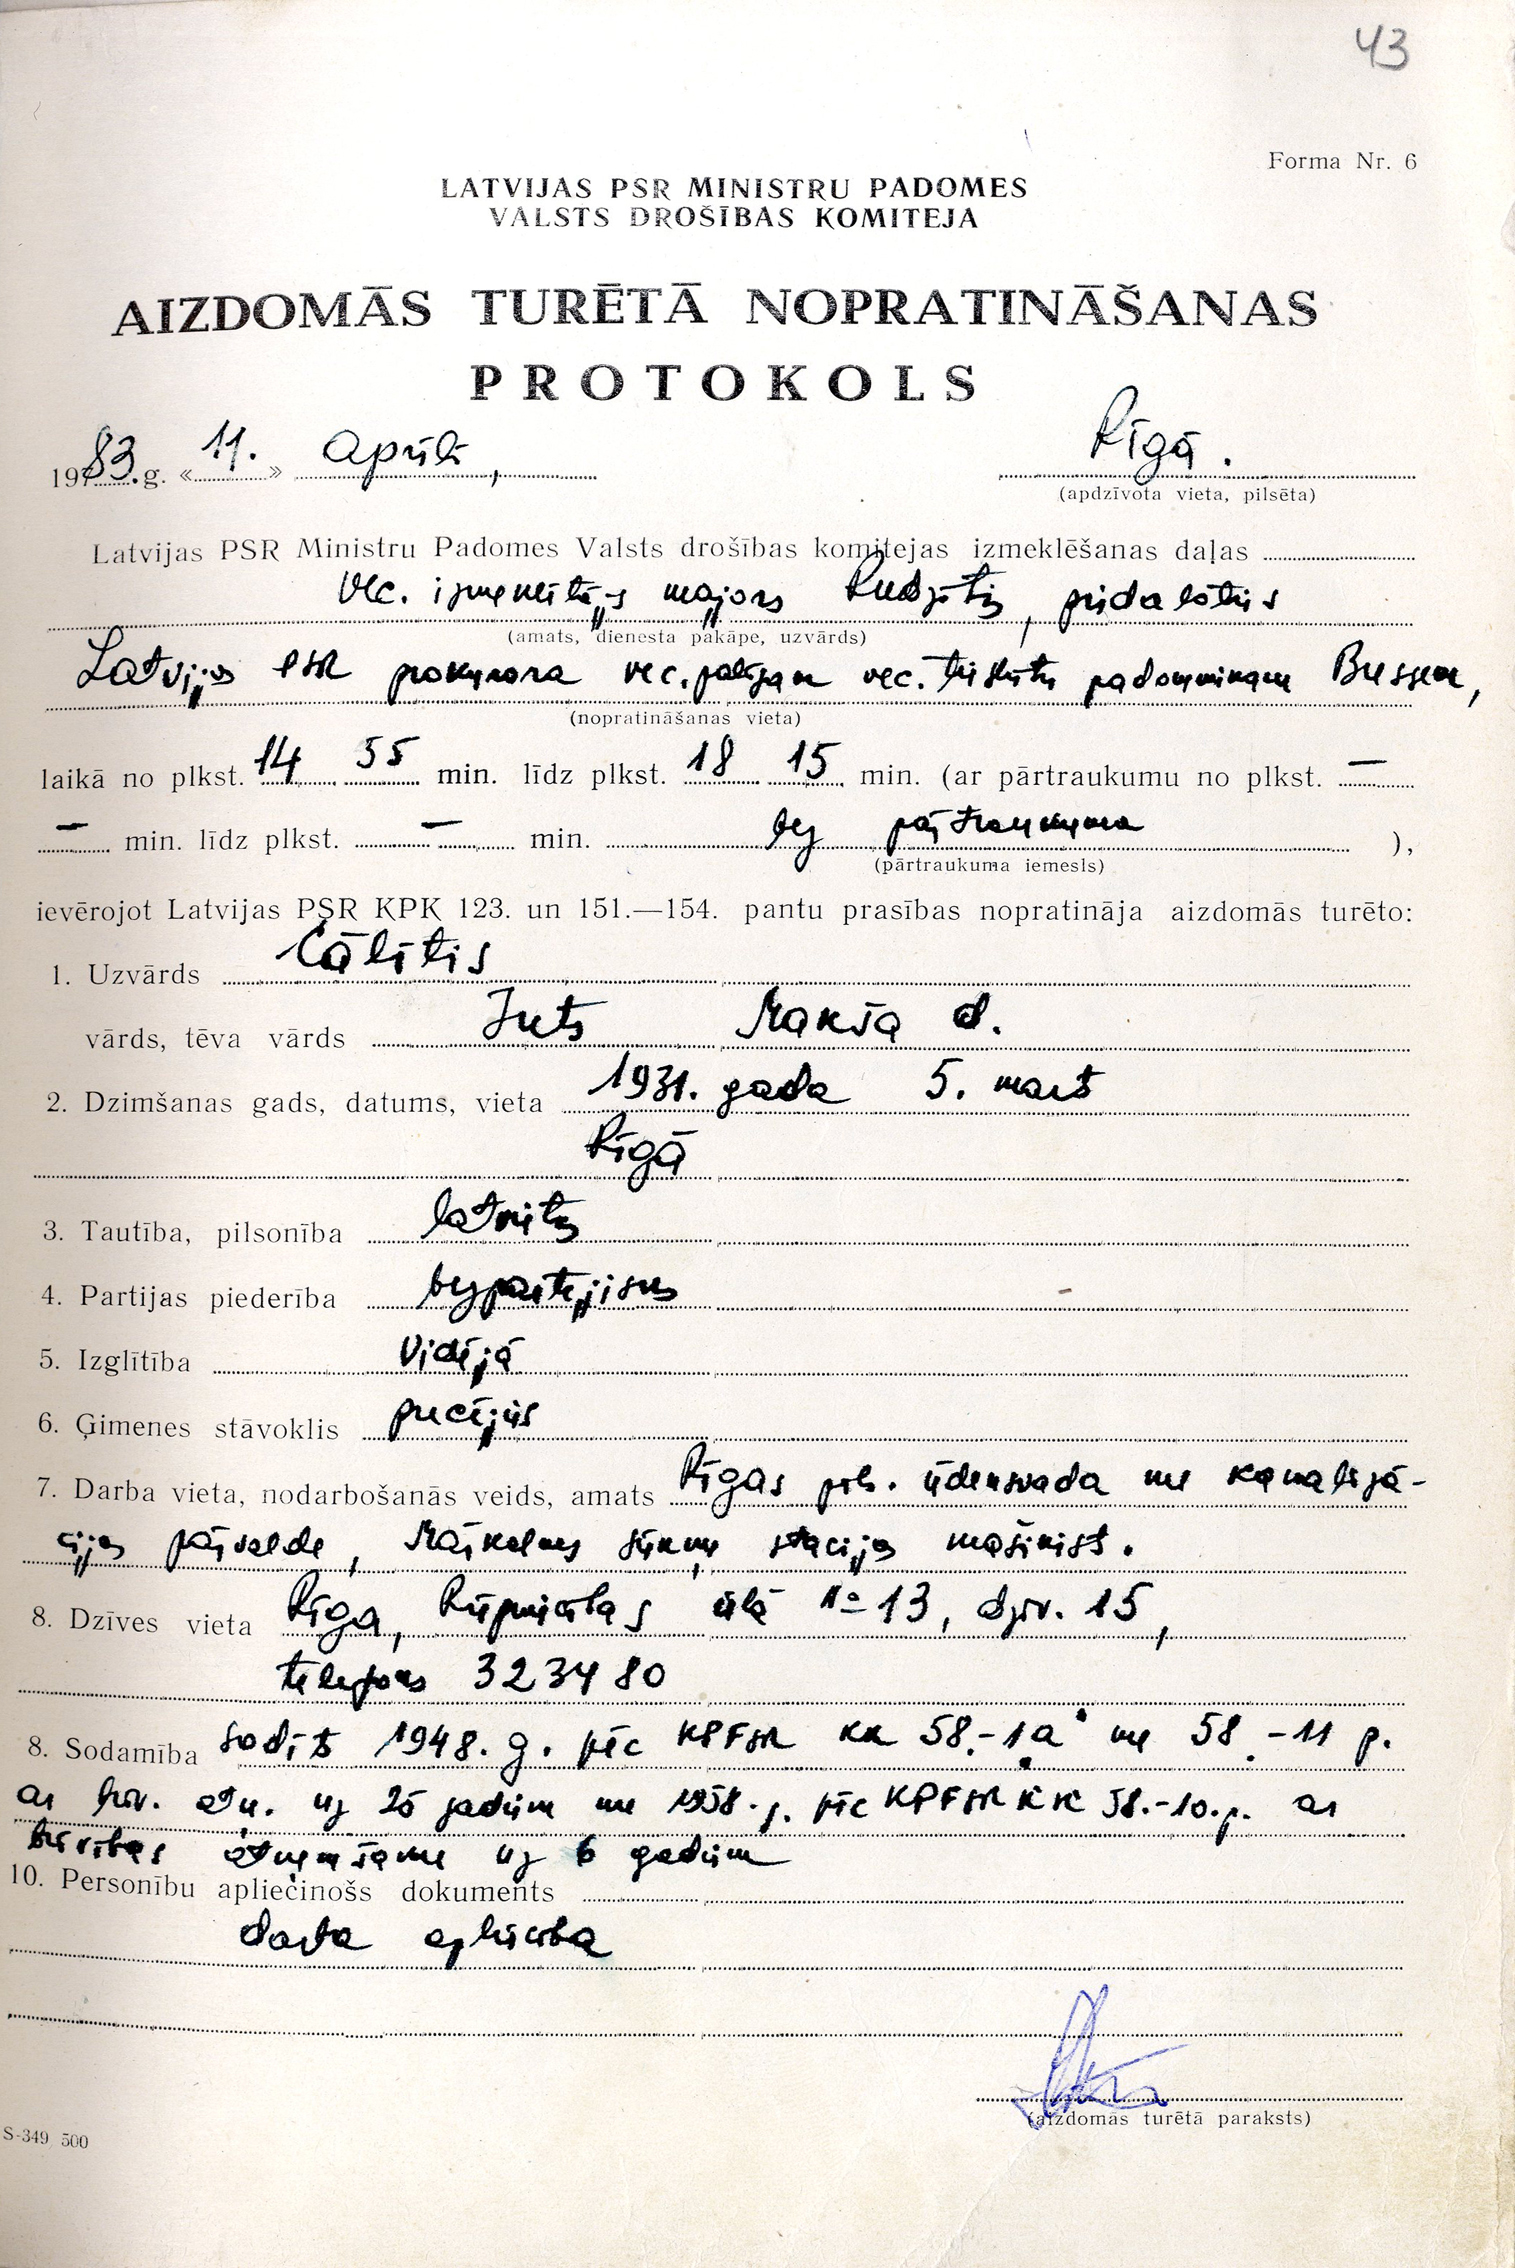 43
Forma Nr. 6
LATVIJAS PSR MINISTRU PADOMES
VALSTS DROŠĪBAS KOMITEJA
AIZDOMĀS TURĒTĀ NOPRATINĀŠANAS
PROTOKOLS
1983. g. «11.» aprīlī, Rīgā.
(apdzīvota vieta, pilsēta)
Latvijas PSR Ministru Padomes Valsts drošības komitejas izmeklēšanas daļas
vec. izmeklētājs majors Rudzītis, piedaloties
(amats, dienesta pakāpe, uzvārds)
Latvijas PSR prokurora vec. palīgam vec. tieslietu padomniekam
(nopratināšanas vieta)
laikā no plkst. 14 55 min. līdz plkst. 18 15 min. (ar pārtraukumu no plkst. —
— min. līdz plkst. — min. bez pārtraukuma ),
(pārtraukuma iemesls)
ievērojot Latvijas PSR KPK 123. un 151.—154. pantu prasības nopratināja aizdomās turēto:
1. Uzvārds Cālītis
vārds, tēva vārds Ints Makša d.
2. Dzimšanas gads, datums, vieta 1931. gada 5. martā
Rīgā
3. Tautība, pilsonība latvietis
4. Partijas piederība bezpartejisks
5. Izglītība vidējā
6. Ģimenes stāvoklis precējies
7. Darba vieta, nodarbošanās veids, amats Rīgas pils. ūdensvada un kanalizā-
cijas pārvalde, Mārkalnes sūkņu stacijas mašīnists.
8. Dzīves vieta Rīga, Rūpniecības ielā № 13, dzīv. 15,
telefons 323480
8. Sodamība sodīts 1948. g. pēc KPFSR KK 58.-1a un 58.-11 p.
ar brīv. atņ. uz 25 gadiem un 1958. g. pēc KPFSR KK 58.-10. p. ar
brīvības atņemšanu uz 6 gadiem
10. Personību apliecinošs dokuments
darba apliecība
(aizdomās turētā paraksts)
S-349 500